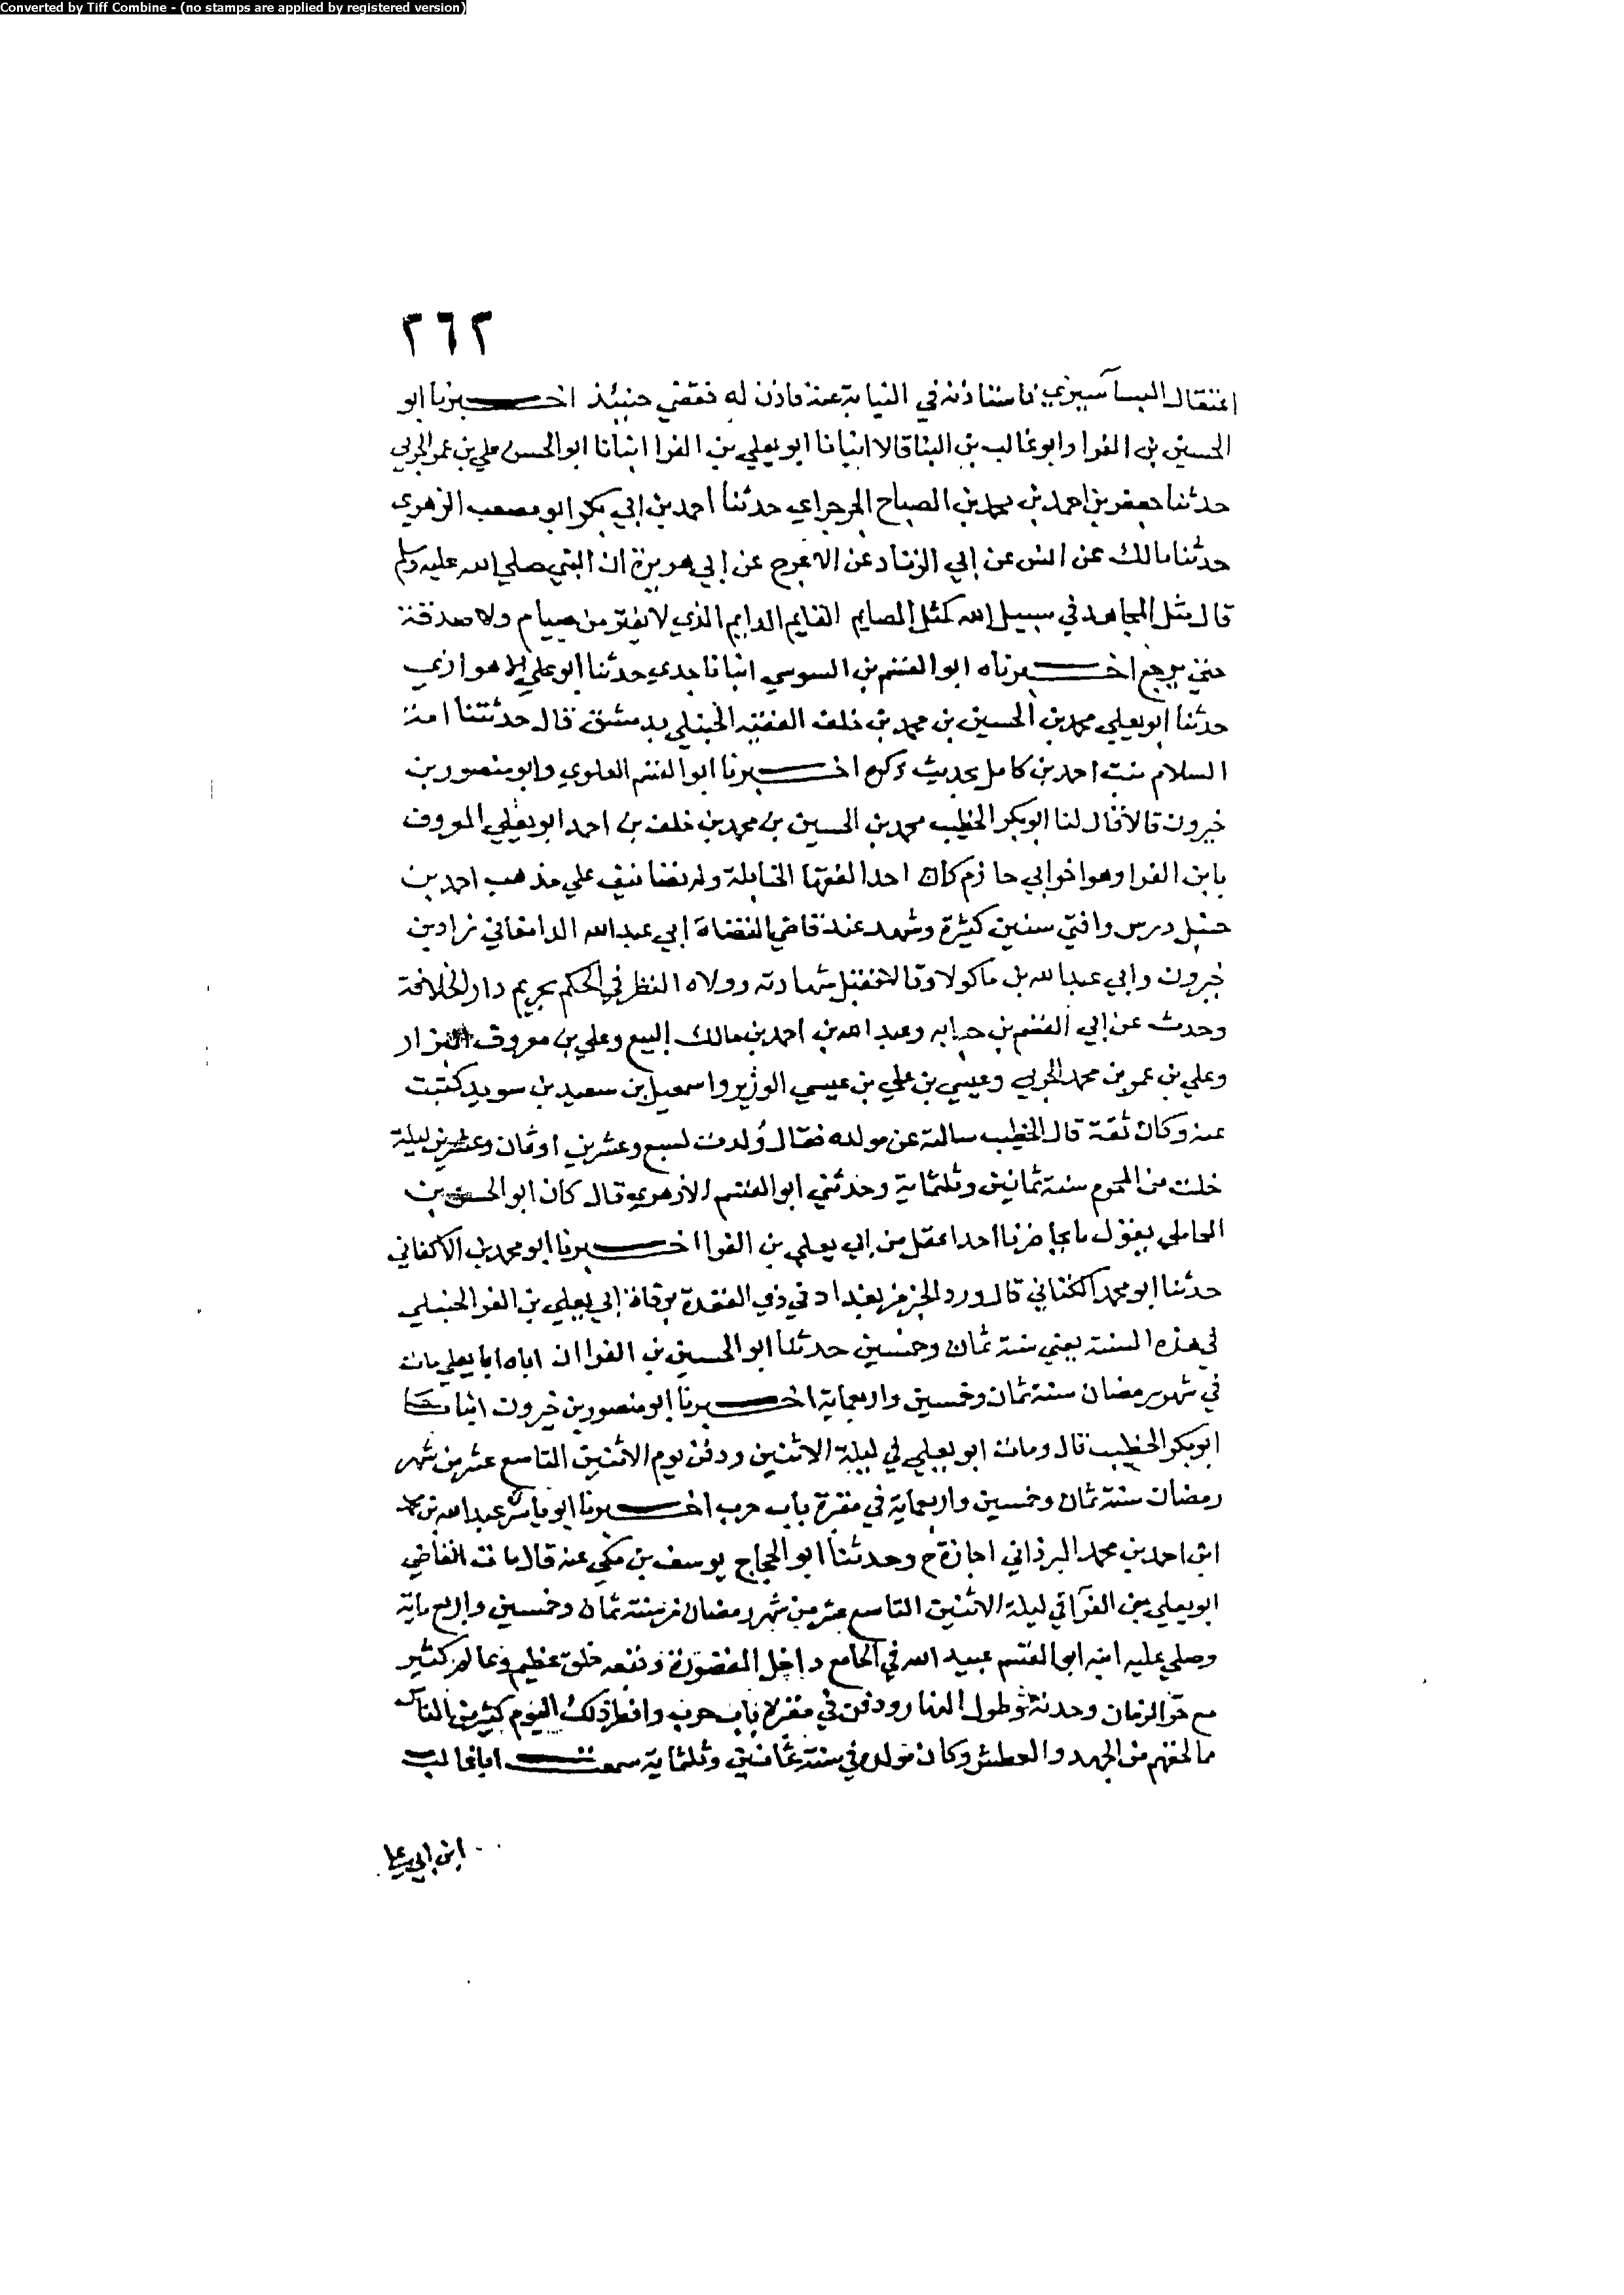 Converted by Tiff Combine - (no stamps are applied by registered version)
٢٦٢
اعتقال البساسيري فاستاذنه في النيابة عنه فاذن له فقضي حينئذ اخبرنا ابو
الحسين بن الفرا وابو غالب بن البنا قالا انبانا ابو يعلي بن الفرا انبانا ابو الحسن علي بن عمر الحربي
حدثنا جعفر بن احمد بن محمد بن الصباح الجرجراي حدثنا احمد بن ابي بكر ابو مصعب الزهري
حدثنا مالك عن انس عن ابي الزناد عن الاعرج عن ابي هريرة ان النبي صلي الله عليه وسلم
قال مثل المجاهد في سبيل الله كمثل الصايم القايم الدايم الذي لا يفتر من صيام ولا صدقة
حتي يرجع اخبرناه ابو القسم بن السوسي انبانا جدي حدثنا ابو علي الاهوازي
حدثنا ابو يعلي محمد بن الحسين بن محمد بن خلف الفقيه الحنبلي بدمشق قال حدثتنا امة
السلام بنت احمد بن كامل بحديث ذكره اخبرنا ابو القسم العلوي وابو منصور بن
خيرون قالا قال لنا ابو بكر الخطيب محمد بن الحسين بن محمد بن خلف بن احمد ابو يعلي المعروف
بابن الفرا وهو اخو ابي حازم كان احد الفقها الحنابلة وله تصانيف علي مذهب احمد بن
حنبل درس وافتي سنين كثيرة وشهد عند قاضي القضاة ابي عبد الله الدامغاني زاد بن
خيرون وابي عبد الله بن ماكولا وقالا فقبل شهادته وولاه النظر في الحكم بحريم دار الخلافة
وحدث عن ابي القسم بن حبابه وعبد الله بن احمد بن مالك البيع وعلي بن معروف البزار
وعلي بن عمر بن محمد الحربي وعيسي بن علي بن عيسي الوزير واسمعيل بن سعيد بن سويد كتبت
عنه وكان ثقة قال الخطيب سالته عن مولده فقال وُلدت لسبع وعشرين او ثمان وعشرين ليلة
خلت من المحرم سنة ثمانين وثلثماية وحدثني ابو القسم الازهري قال كان ابو الحسين بن
المحاملي يقول ما تحاضرنا احد اعقل من ابي يعلي بن الفرا اخبرنا ابو محمد بن الاكفاني
حدثنا ابو محمد الكتاني قال ورد الخبر من بغداد في ذي القعدة بوفاة ابي يعلي بن الفرا الحنبلي
في هذه السنة يعني سنة ثمان وخمسين حدثنا ابو الحسين بن الفرا ان اباه ابا يعلي مات
في شهر رمضان سنة ثمان وخمسين واربعماية اخبرنا ابو منصور بن خيرون انبانا
ابو بكر الخطيب قال ومات ابو يعلي في ليلة الاثنين ودفن يوم الاثنين التاسع عشر من شهر
رمضان سنة ثمان وخمسين واربعماية في مقبرة باب حرب اخبرنا ابو ياسر عبد الله بن محمد
ابن احمد بن محمد البرذاني اجازة ح وحدثنا ابو الحجاج يوسف بن مكي عنه قال مات القاضي
ابو يعلي بن الفرآ في ليلة الاثنين التاسع عشر من شهر رمضان من سنة ثمان وخمسين واربع ماية
وصلي عليه ابنه ابو القسم عبيد الله في الجامع داخل المقصورة وتبعه خلق عظيم وعالم كثير
مع حر الزمان وحدته وطول النهار ودفن في مقبرة باب حرب وافطر ذلك اليوم كثير من الناس
مما لحقهم من الجهد والعطش وكان مولده في سنة ثمانين وثلثماية سمعت ابا غالب
ابن ابي علي